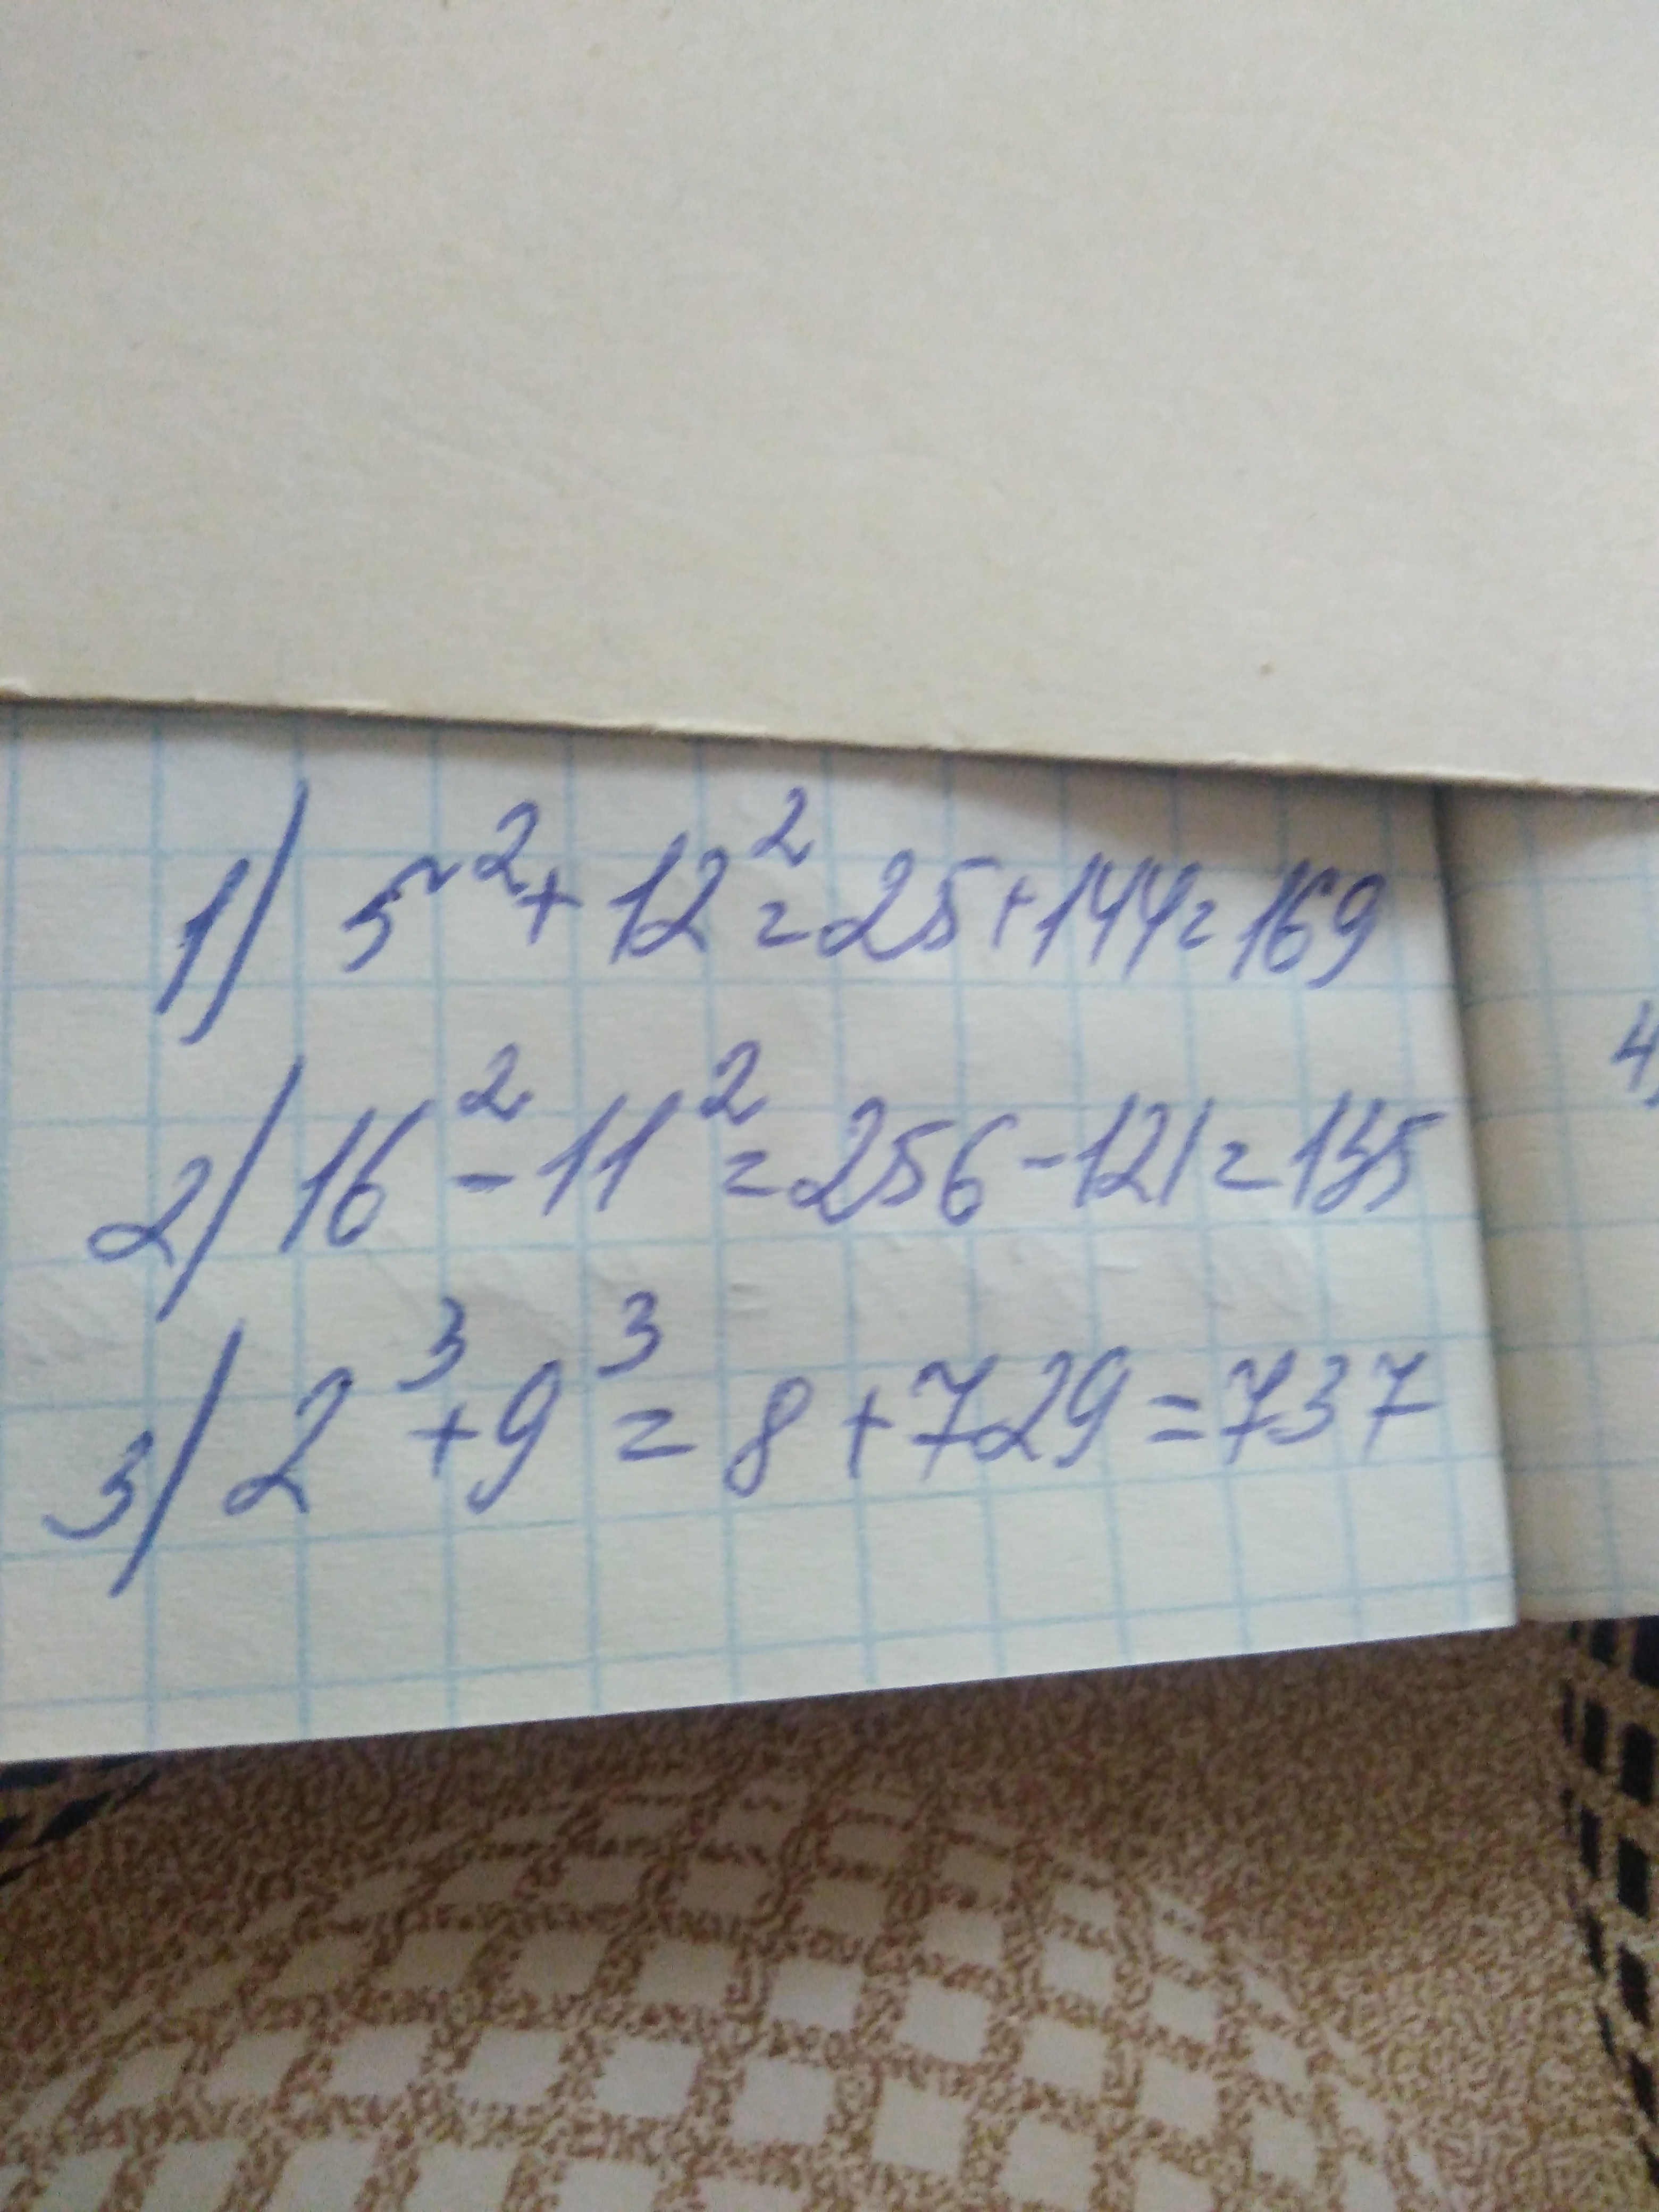 1) 5² + 12² = 25 + 144 = 169
2) 16² - 11² = 256 - 121 = 135
3) 2³ + 9³ = 8 + 729 = 737
4)